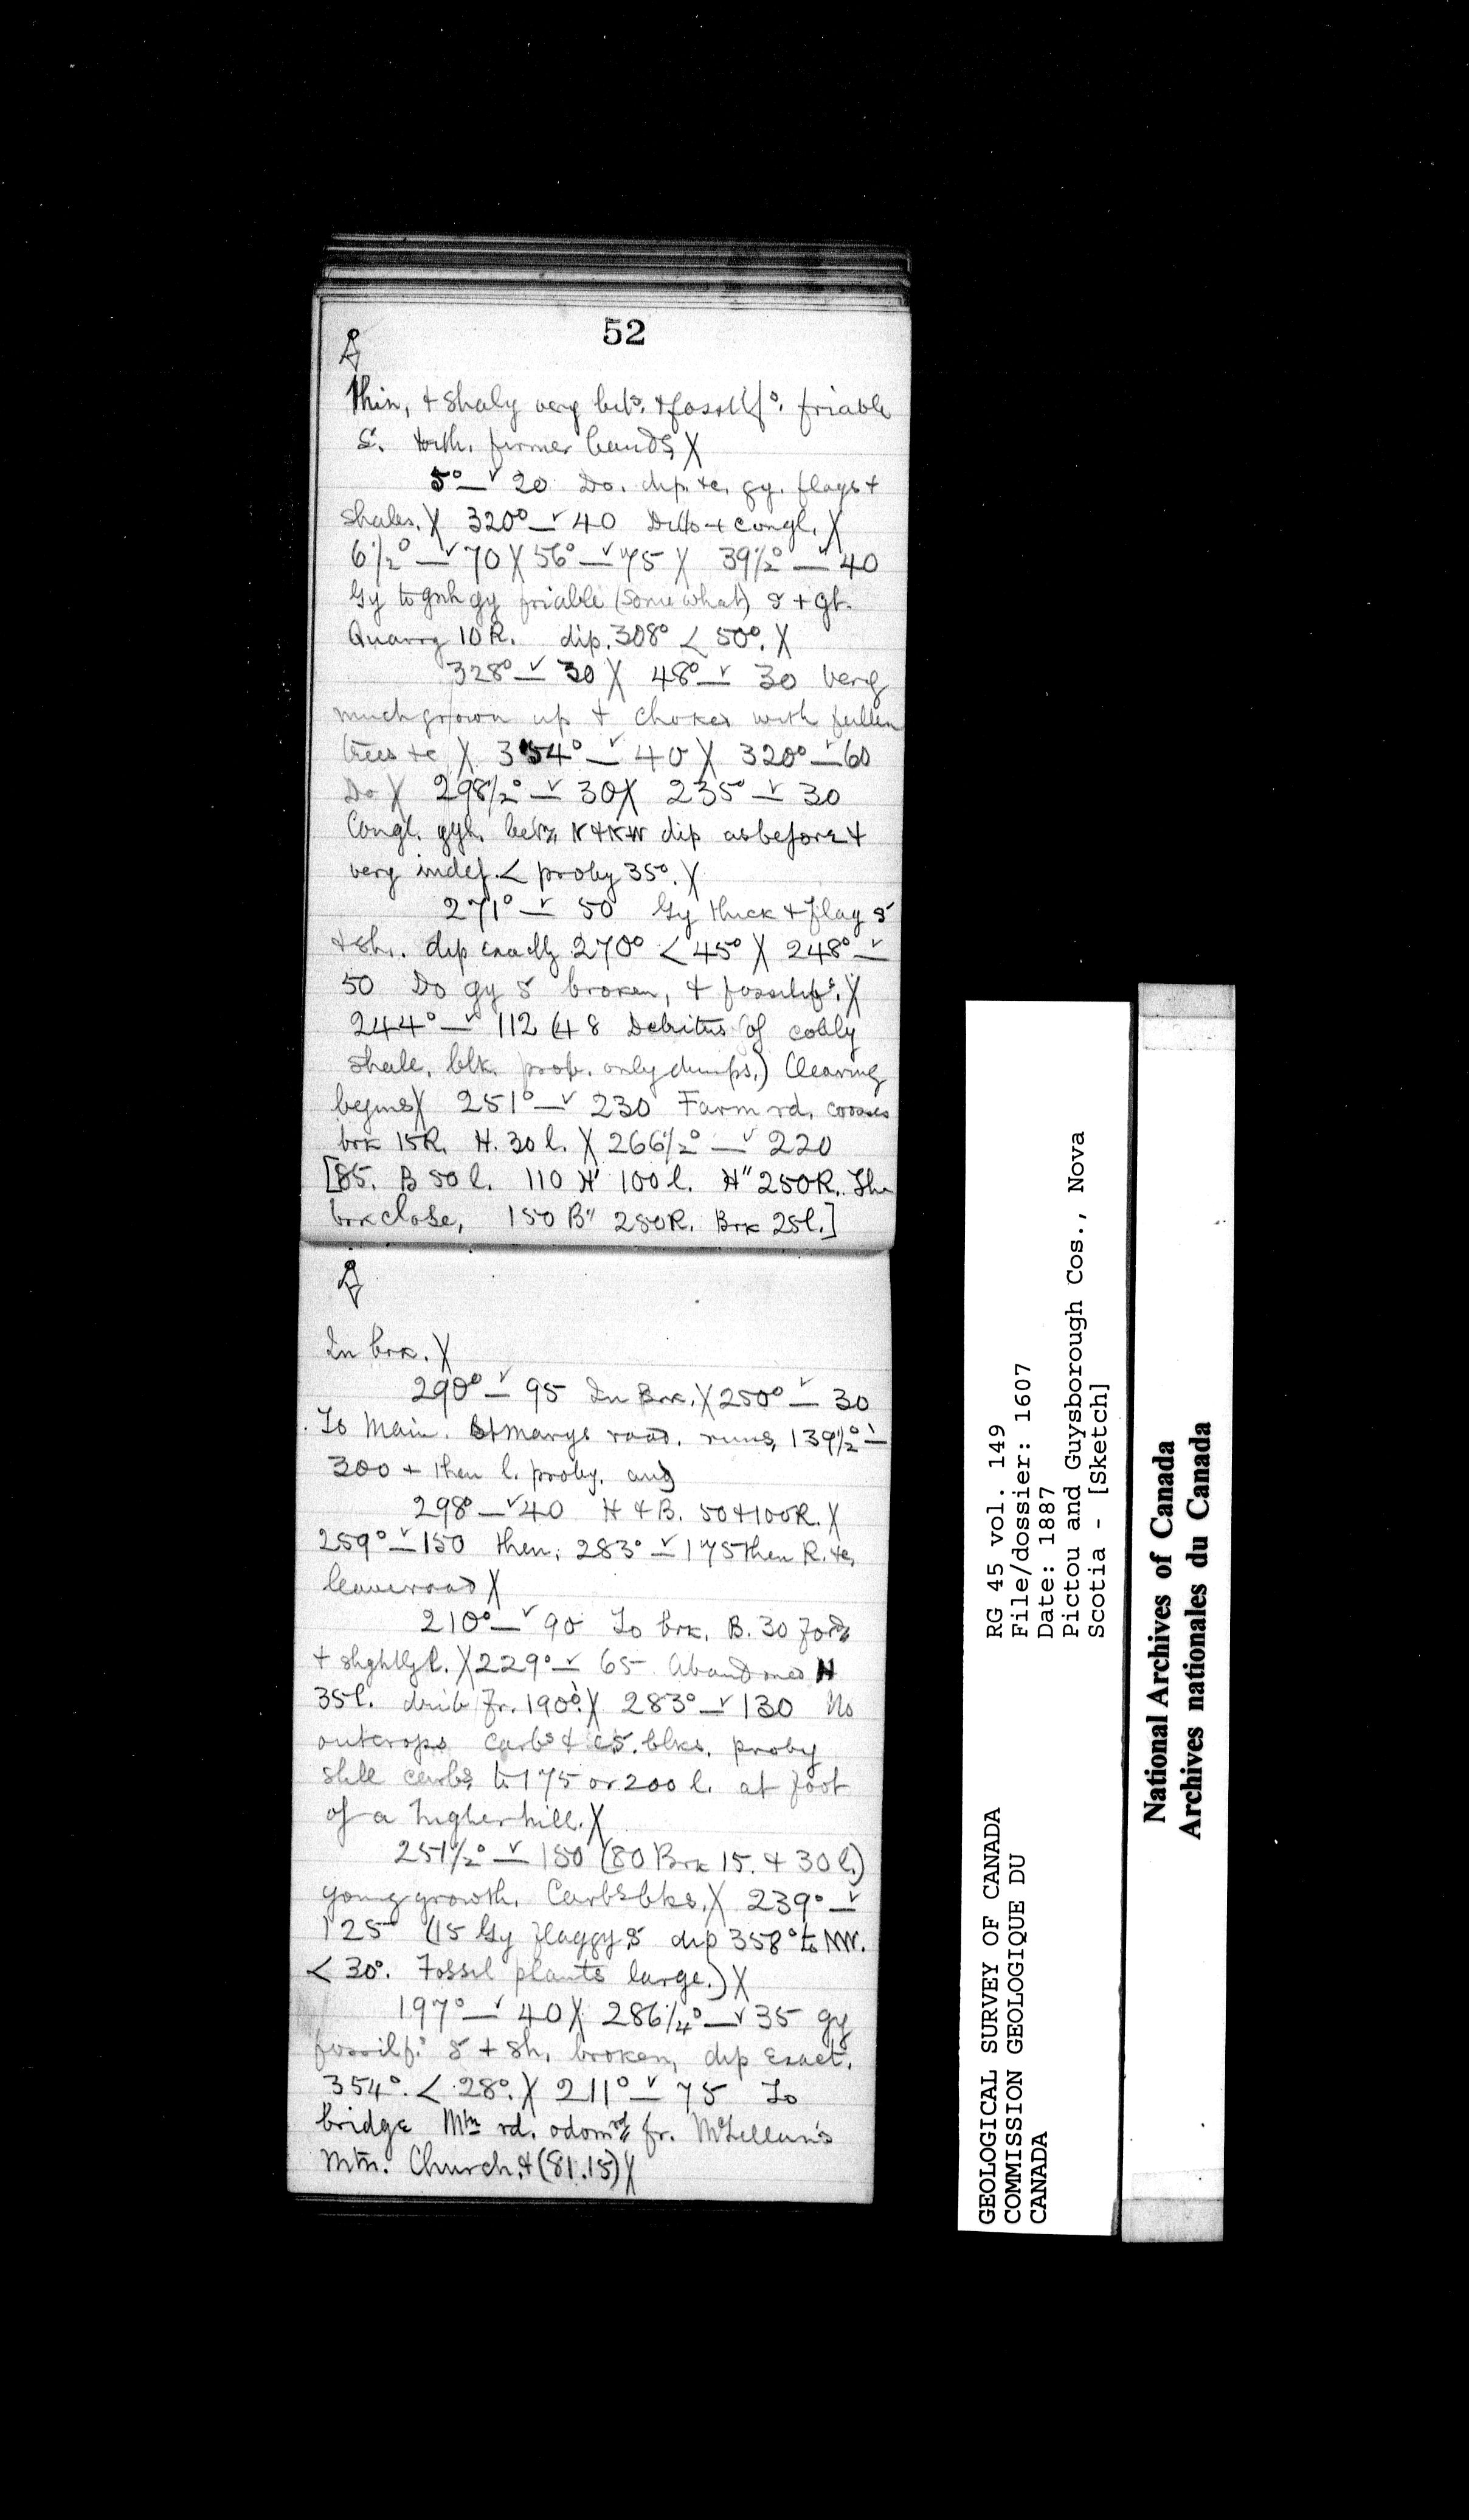 52
thin, + shaly very bits. + fossilfs. friable
S. with firmer bands X
5° — v 20 Do. dip. &c. gy. flags +
shales. X 320° — v 40 Ditto + congl. X
6½° — v 70 X 56° — v 75 X 39½° — v 40
Gy to gnh gy friable (somewhat) S + gt.
Quarry 10 R. dip. 308° < 50°. X
328° — v 30 X 48° — v 30 very
much grown up + choked with fallen
trees &c X 354° — v 40 X 320° — v 60
Do X 298½° — v 30 X 235° — v 30
Congl. gyh. betn N + NW dip as before +
very indef. < proby 35°. X
271° — v 50 Gy thick + flag S
+ sh. dip exactly 270° < 45° X 248° — v
50 Do gy S broken, + fossilfs. X
244° — v 112 (48 Debitus of coaly
shale, blk. prob. only dumps.) Clearing
begins X 251° — v 230 Farm rd. crosses
brk 15R. H. 30 l. X 266½° — v 220
[85. B 50 l. 110 H' 100 l. H" 250R. The
brk close, 150 B" 250R. Brk 25l.]
In brk. X
290° — v 95 In Brk. X 250° — v 30
To Main. St Marys road. runs, 139½° —
300 + then l. proby. and
298° — v 40 H + B. 50 + 100R. X
259° — v 150 then, 283° — v 175 then R. &c,
leave road X
210° — v 90 To brk. B. 30 fords
+ slightly l. X 229° — v 65 Abandoned H
35l. fr. 190°. X 283° — v 130 No
outcrops Carbs + blks. proby
still carbs to 175 or 200 l. at foot
of a higher hill. X
251½° — v 150 (80 Brk 15. + 30 l.)
young growth. Carbs blks. X 239° — v
125 (15 Gy flaggy S dip 358° to NW.
< 30°. Fossil plants large.) X
197° — v 40 X 286¼° — v 35 gy
fossilfs S + sh. broken, dip exact.
354°. < 28°. X 211° — v 75 To
bridge Mtn rd. odomd fr. McLellan's
Mtn. Church. + (81.15) X
GEOLOGICAL SURVEY OF CANADA
COMMISSION GEOLOGIQUE DU
CANADA
RG 45 vol. 149
File/dossier: 1607
Date: 1887
Pictou and Guysborough Cos., Nova
Scotia - [Sketch]
National Archives of Canada
Archives nationales du Canada